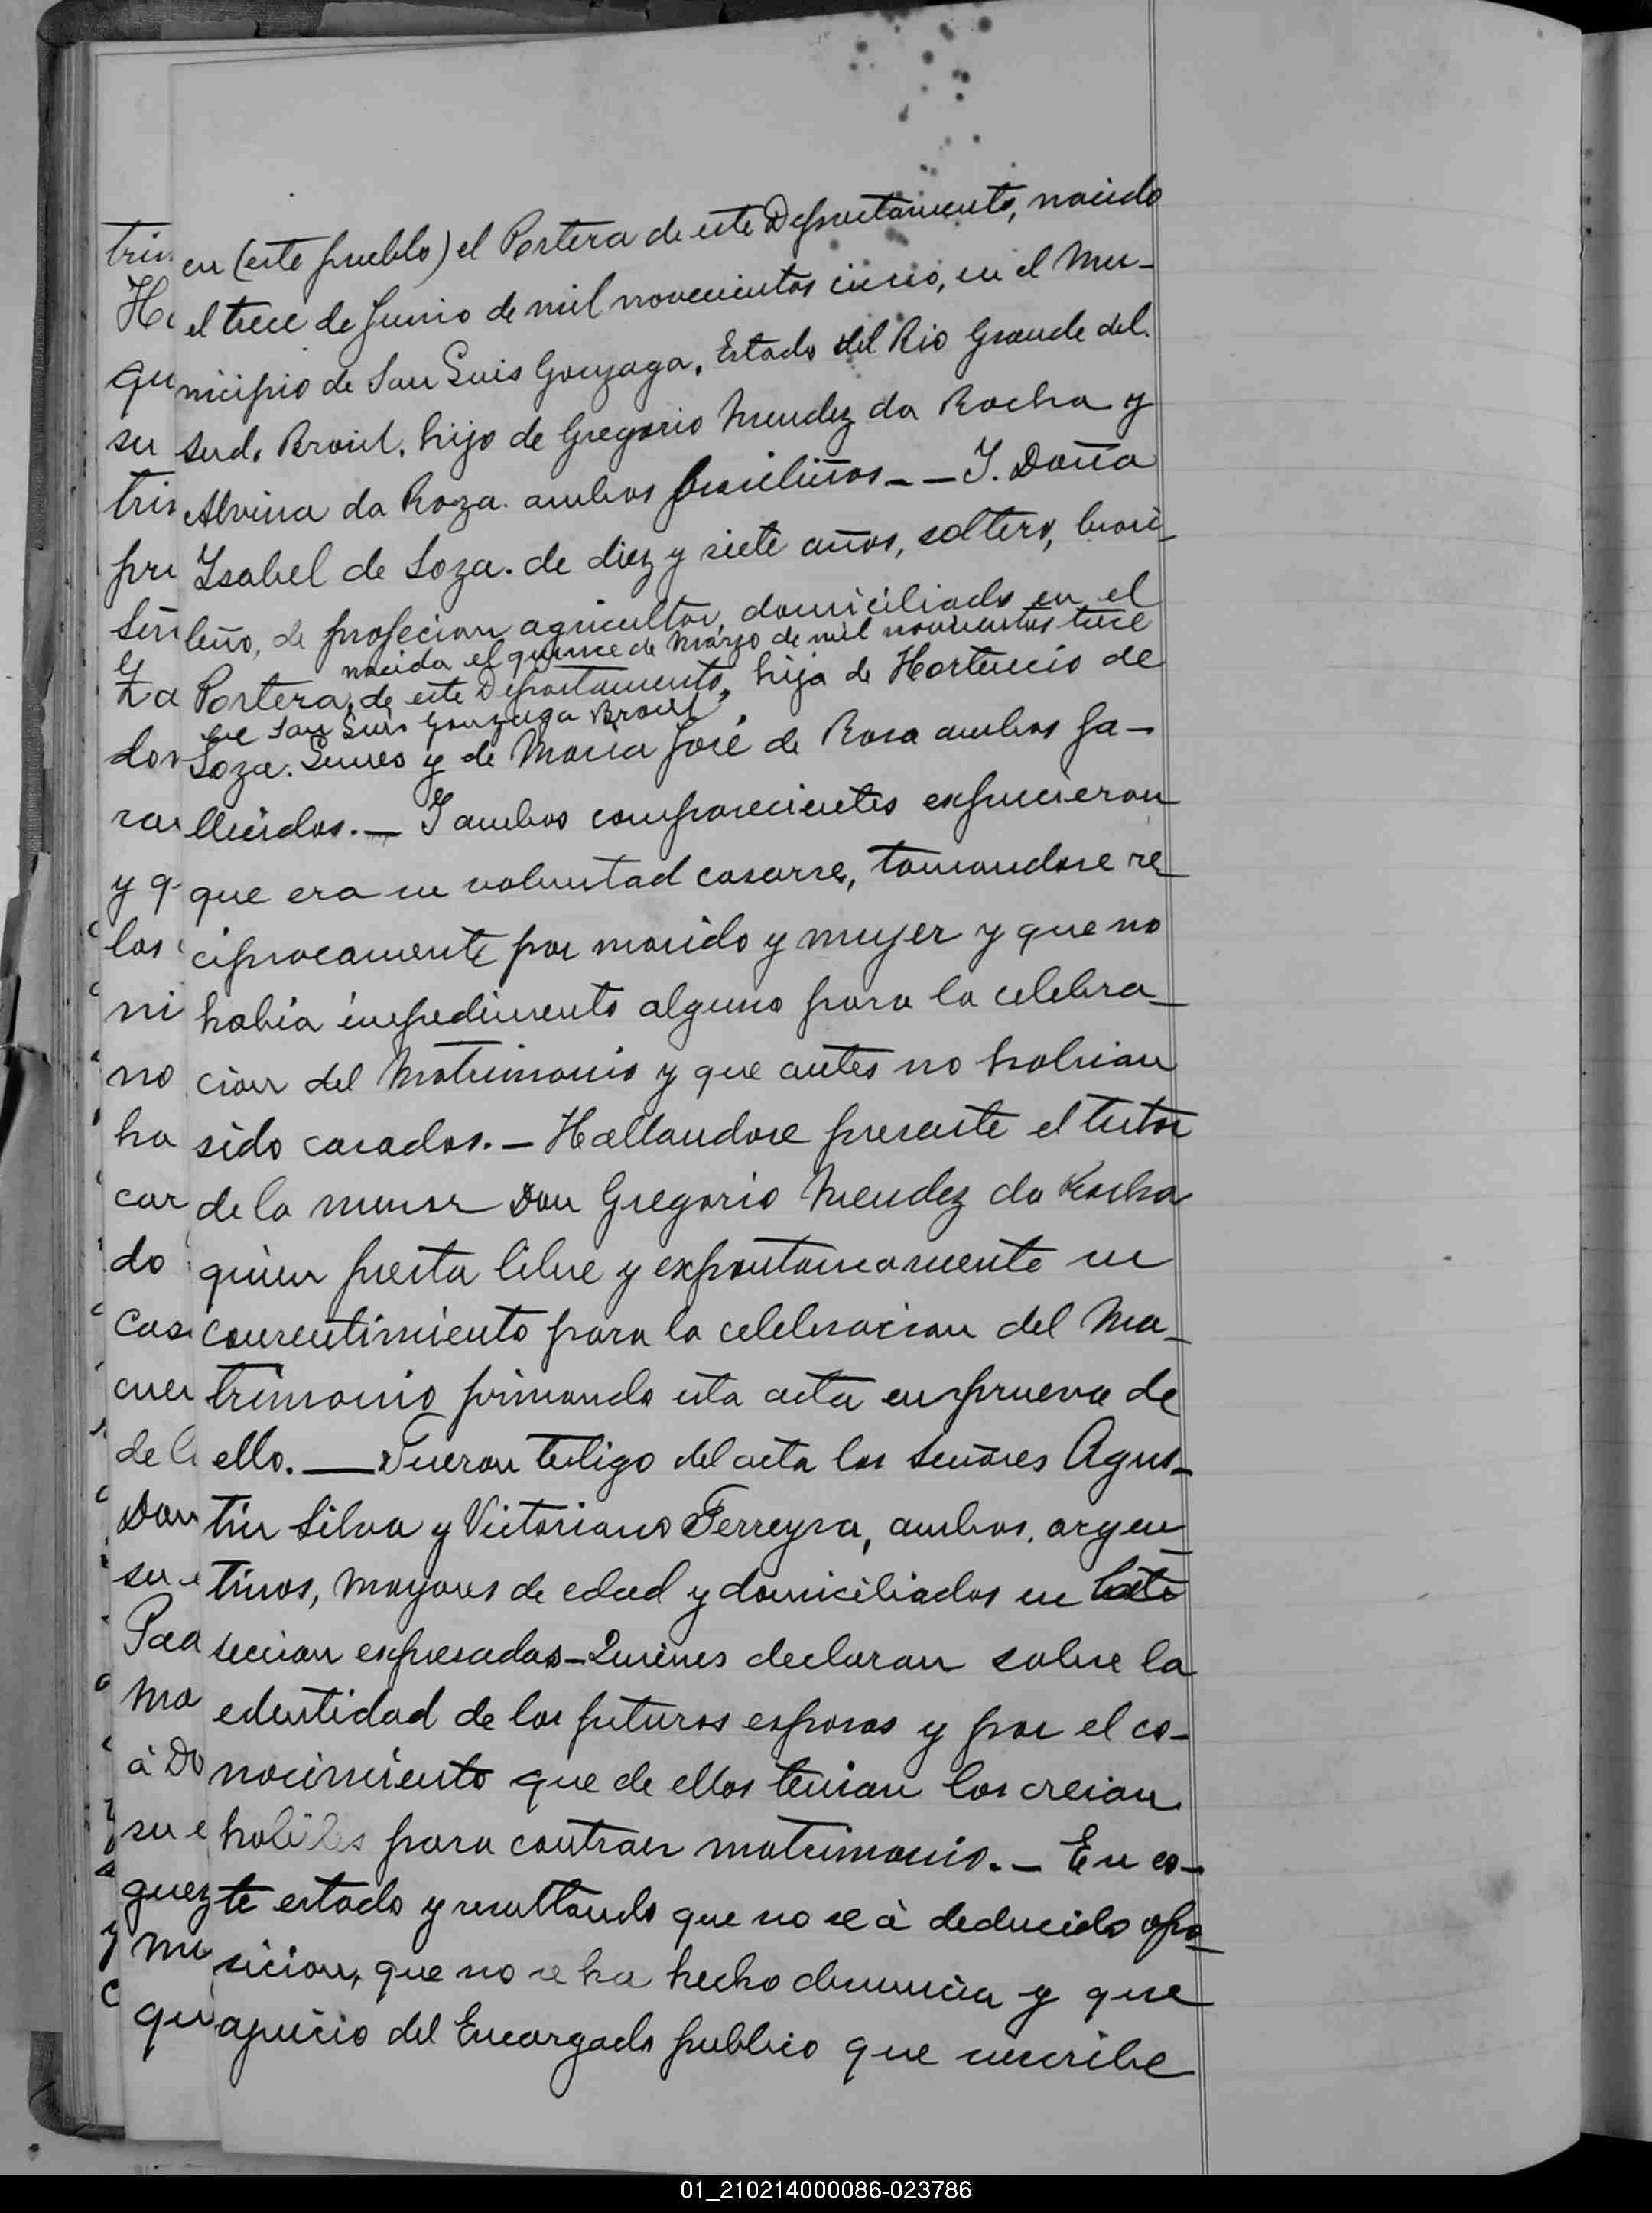 en (este pueblo) el Portera de este Departamento, nacido
el trece de Junio de mil novecientos cinco, en el Mu-
nicipio de San Luis Gonzaga, Estado del Rio Grande del
sud, Brasil, hijo de Gregorio Mendez da Rocha y
Alvina da Roza. ambos brasileños - - Y. Doña
Isabel de Loza. de diez y siete años, soltero, brasi-
leño, de profecion agricultor, domiciliado en el
nacida el quince de Marzo de mil novecientos trece
Portera, de este Departamento, hija de Hortencio de
en San Luis Gonzaga Brasil
Loza. y de Maria José de Rosa ambos fa-
llecidos. - Y ambos comparecientes expucieron
que era su voluntad casarse, tomandose re-
ciprocamente por marido y mujer y que no
habia impedimento alguno para la celebra-
cion del Matrimonio y que antes no habian
sido casados. - Hallandose presente el tutor
de la menor Don Gregorio Mendez da Rocha
quien presta libre y expontaneamente su
consentimiento para la celebracion del Ma-
trimonio firmando esta acta en prueva de
ello. — Fueron testigo del acta los señores Agus-
tin Silva y Victoriano Ferreyra, ambos, argen-
tinos, mayores de edad y domiciliados en
seccion expresadas - Quienes declaran sobre la
edentidad de los futuros esposos y por el co-
nocimiento que de ellos tenian los creian
habiles para contraer matrimonio. - En es-
te estado y resultando que no se à deducido opo-
sicion, que no se ha hecho denuncia y que
ajuicio del Encargado publico que suscribe
01_210214000086-023786